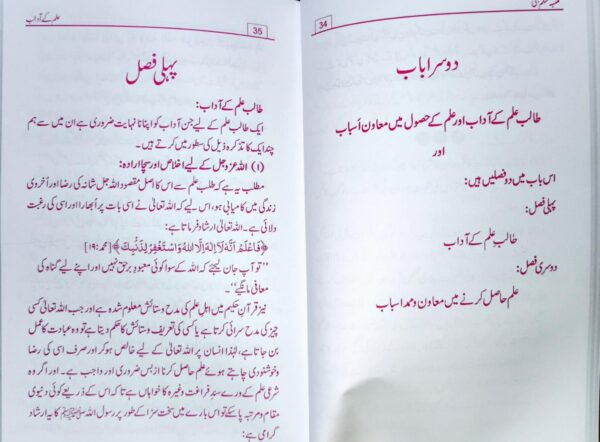 34
دوسرا باب
طالب علم کے آداب اور علم کے حصول میں معاون اسباب
اور
اس باب میں دو فصلیں ہیں:
پہلی فصل:
طالب علم کے آداب
دوسری فصل:
علم حاصل کرنے میں معاون و ممد اسباب
علم کے آداب
35
پہلی فصل
طالب علم کے آداب:
ایک طالب علم کے لیے جن آداب کو اپنانا نہایت ضروری ہے ان میں سے ہم
چند ایک کا تذکرہ ذیل کی سطور میں کرتے ہیں۔
(۱) اللہ عزوجل کے لیے اخلاص اور سچا ارادہ:
مطلب یہ ہے کہ طلب علم سے اس کا اصل مقصود اللہ جل شانہ کی رضا اور اُخروی
زندگی میں کامیابی ہو، اس لیے کہ اللہ تعالیٰ نے اسی بات پر اُبھارا اور اسی کی رغبت
دلائی ہے۔ اللہ تعالیٰ ارشاد فرماتا ہے:
﴿فَاعْلَمْ أَنَّهُ لَا إِلٰهَ إِلَّا اللهُ وَاسْتَغْفِرْ لِذَنْبِكَ﴾ [محمد:۱۹]
”تو آپ جان لیجئے کہ اللہ کے سوا کوئی معبودِ برحق نہیں اور اپنے لیے گناہ کی
معافی مانگیے“۔
نیز قرآنِ حکیم میں اہلِ علم کی مدح و ستائش معلوم شدہ ہے اور جب اللہ تعالیٰ کسی
چیز کی مدح سرائی کرتا ہے یا کسی کی تعریف و ستائش کا حکم دیتا ہے تو وہ عبادت کا عمل
بن جاتا ہے، لہٰذا انسان پر اللہ تعالیٰ کے لیے خالص ہو کر اور صرف اسی کی رضا
و خوشنودی چاہتے ہوئے علم حاصل کرنا از بس ضروری اور واجب ہے۔ اور اگر وہ
شرعی علم کے ورے سندِ فراغت وغیرہ کا خواہاں ہے تاکہ اس کے ذریعے کوئی دنیوی
مقام و مرتبہ پا سکے تو اس بارے میں سخت سزا کے طور پر رسول اللہ ﷺ کا یہ ارشاد
گرامی ہے: